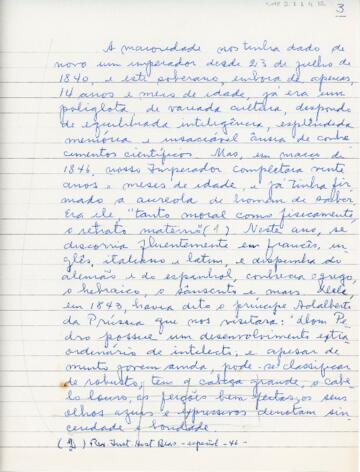 3
A maioridade nos tinha dado de
novo um imperador desde 23 de julho de
1840, e este soberano, embora de apenas
14 anos e meses de idade, já era um
poliglota, de variada cultura, dispondo
de equilibrada inteligência, esplendida
memória e insaciável ânsia de conhe
cimentos científicos. Mas, em março de
1846, nosso Imperador completara vinte
anos e meses de idade, e já tinha fir
mado a aureola de homem de saber.
Era ele, "tanto moral como fisicamente
o retrato materno" (1) Neste ano, se
discorria fluentemente em francês, in
glês, italiano e latim, e dispunha do
alemão e do espanhol, conhecia o grego,
o hebraico, o sânscrito e mais
em 1843, havia dito o príncipe Adalberto
da Prússia que nos visitara: "dom Pe
dro possue um desenvolvimento extra
ordinário de intelecto, e apesar de
muito jovem ainda, pode-se classificar
de robusto, tem a cabeça grande, o cabe
lo louro, as feições bem feitas, os seus
olhos azues e expressivos denotam sin
ceridade e bondade.
(1) Rev. Inst. Hist. Bras - especial - 46 -